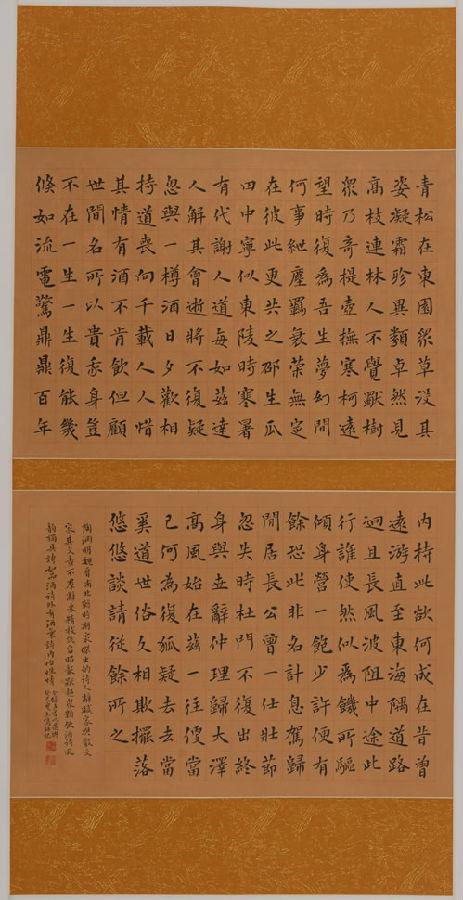 青松在東園眾草沒其
姿凝霜殄異類卓然見
高枝連林人不覺獸樹
眾乃奇提壺撫寒柯遠
望時復為吾生夢幻間
何事紲塵羈衰榮無定
在彼此更共之邵生瓜
田中寧似東陵時寒暑
有代謝人道每如茲達
人解其會逝將不復疑
忽與一樽酒日夕歡相
持道喪向千載人人惜
其情有酒不肯飲但顧
世間名所以貴我身豈
不在一生一生復能幾
倏如流電驚鼎鼎百年
內持此欲何成在昔曾
遠游直至東海隅道路
迴且長風波阻中途此
行誰使然似為饑所驅
傾身營一飽少許便有
餘恐此非名計息駕歸
閒居長公曾一仕壯節
忽失時杜門不復出終
身與世辭仲理歸大澤
高風始在茲一往便當
已何為復狐疑去去當
奚道世俗久相欺擺落
悠悠談請從餘所之